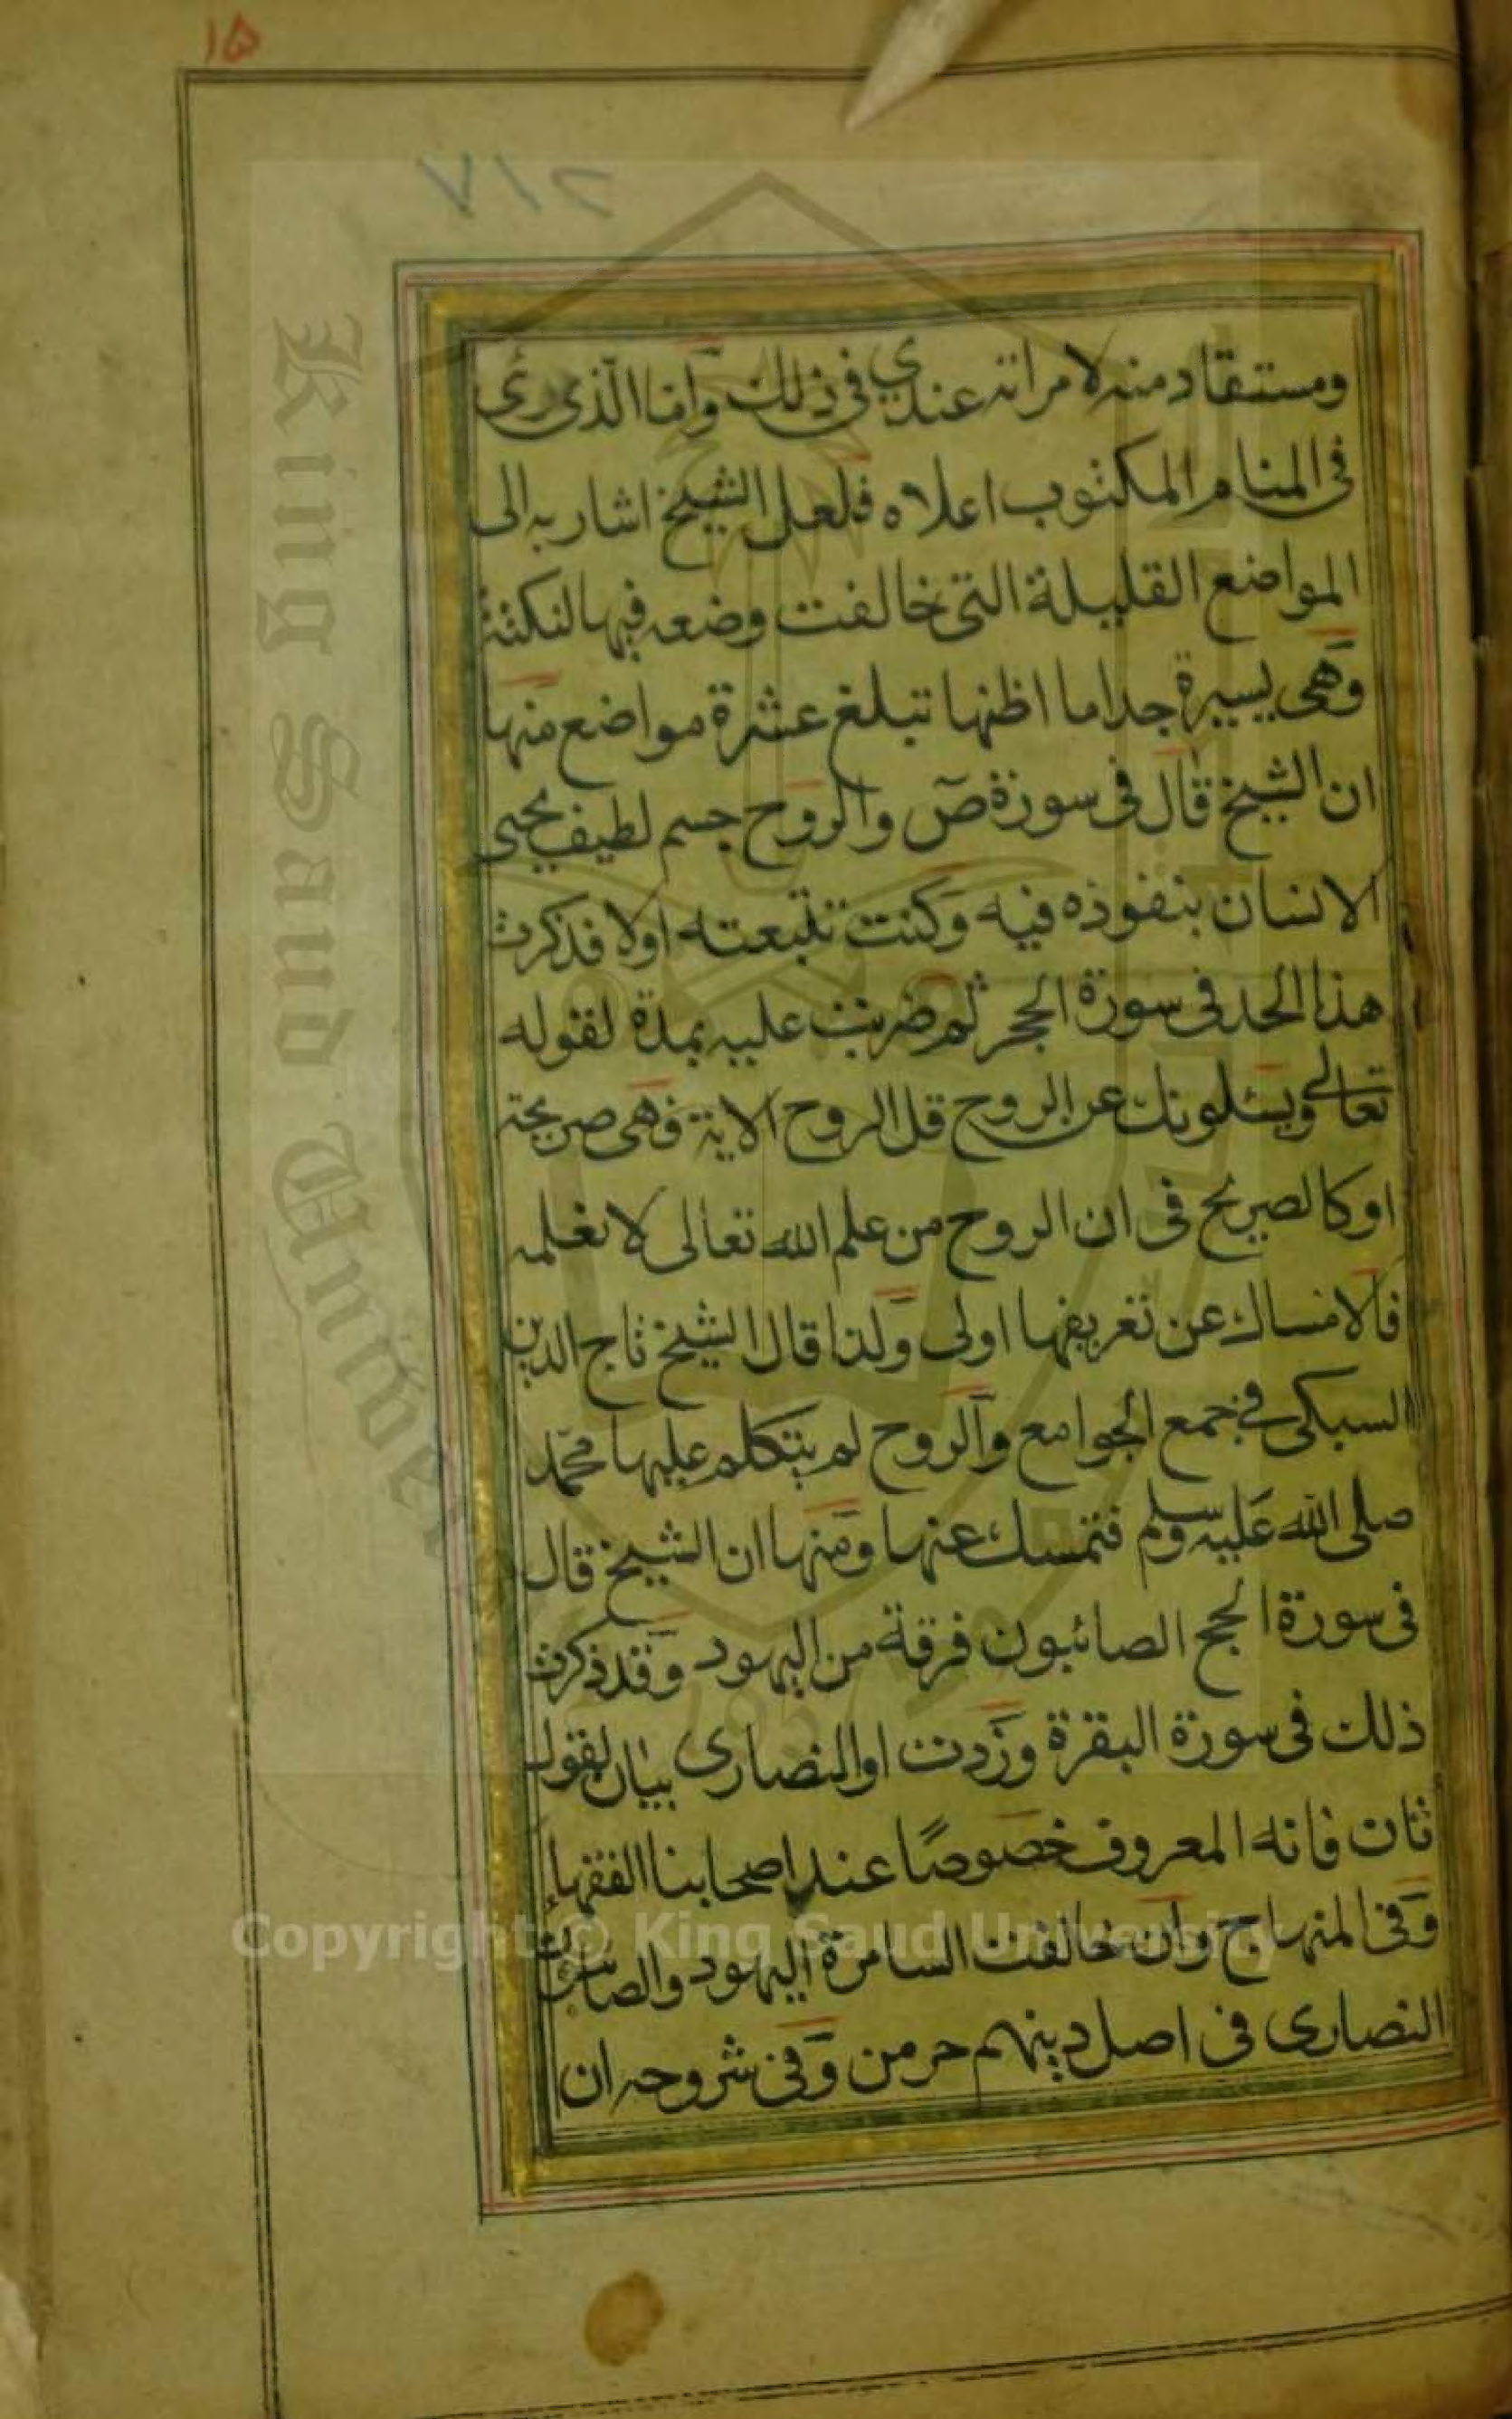 ١٥
٢١٧
ومستفاد منه لا مراته عندي في ذلك وأما الذي رئى
في المنام المكتوب اعلاه فلعل الشيخ اشار به الى
المواضع القليلة التي خالفت وضعه فيها لنكتة
وهي يسيرة جدا ما اظنها تبلغ عشرة مواضع منها
ان الشيخ قال في سورة ص والروح جسم لطيف يحيى
الانسان بنفوذه فيه وكنت تتبعته اولا فذكرت
هذا الحد في سورة الحجر ثم ضربت عليه بمدة لقوله
تعالى ويسئلونك عن الروح قل الروح الاية فهي صريحة
او كالصريح في ان الروح من علم الله تعالى لا نعلمه
فالامساك عن تعريفها اولى ولذا قال الشيخ تاج الدين
السبكى في جمع الجوامع والروح لم يتكلم عليها محمد
صلى الله عليه وسلم فنمسك عنها ومنها ان الشيخ قال
في سورة الحج الصائبون فرقة من اليهود وقد ذكرت
ذلك في سورة البقرة وزدت او النصارى بيان لقول
ثان فانه المعروف خصوصًا عند اصحابنا الفقهاء
وفى المنهاج وان خالفت السامرة اليهود والصائبون
النصارى في اصل دينهم حرمن وفى شروحه ان
King Saud Univer
Copyright © King Saud University